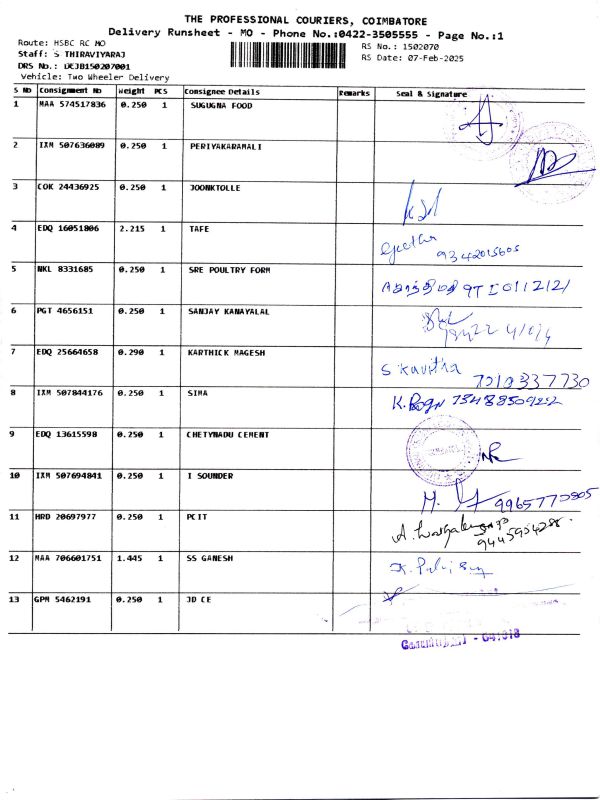 THE PROFESSIONAL COURIERS, COIMBATORE
Delivery Runsheet - MO - Phone No.:0422-3505555 - Page No.:1
Route: HSBC RC MO
RS No.: 1502070
Staff: S THIRAVIYARAJ
RS Date: 07-Feb-2025
DRS No.: DCJB150207001
Vehicle: Two Wheeler Delivery
S No Consignment No Weight PCS Consignee Details Remarks Seal & Signature
1 MAA 574517836 0.250 1 SUGUGNA FOOD
2 IXM 507636089 0.250 1 PERIYAKARAMALI
3 COK 24436925 0.250 1 JOONKTOLLE
4 EDQ 16051806 2.215 1 TAFE
Geetha 9342015605
5 NKL 8331685 0.250 1 SRE POULTRY FORM
6 PGT 4656151 0.250 1 SANJAY KANAYALAL
7 EDQ 25664658 0.290 1 KARTHICK MAGESH
S Kavitha 7010337730
8 IXM 507844176 0.250 1 SIMA
9 EDQ 13615598 0.250 1 CHETYNADU CEMENT
10 IXM 507694841 0.250 1 I SOUNDER
M. 9965770805
11 HRD 20697977 0.250 1 PCIT
12 MAA 706601751 1.445 1 SS GANESH
13 GPM 5462191 0.250 1 JD CE
641018